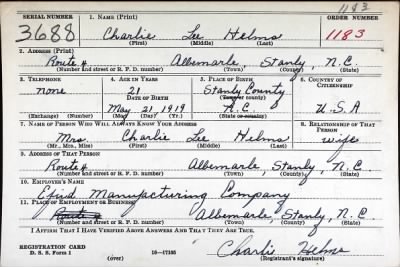 1183
SERIAL NUMBER 1. NAME (Print) ORDER NUMBER
3688 Charlie Lee Helms 1183
(First) (Middle) (Last)
2. ADDRESS (Print)
Route 4 Albemarle, Stanly, N.C.
(Number and street or R. F. D. number) (Town) (County) (State)
3. TELEPHONE 4. AGE IN YEARS 5. PLACE OF BIRTH 6. COUNTRY OF CITIZENSHIP
none 21 Stanly County
DATE OF BIRTH (Town or county)
May 21, 1919 N.C. U.S.A
(Exchange) (Number) (Mo.) (Day) (Yr.) (State or country)
7. NAME OF PERSON WHO WILL ALWAYS KNOW YOUR ADDRESS 8. RELATIONSHIP OF THAT PERSON
Mrs. Charlie Lee Helms wife
(Mr., Mrs., Miss) (First) (Middle) (Last)
9. ADDRESS OF THAT PERSON
Route 4 Albemarle, Stanly, N.C.
(Number and street or R. F. D. number) (Town) (County) (State)
10. EMPLOYER'S NAME
Efird Manufacturing Company
11. PLACE OF EMPLOYMENT OR BUSINESS
Albemarle, Stanly, N.C.
(Number and street or R. F. D. number) (Town) (County) (State)
I AFFIRM THAT I HAVE VERIFIED ABOVE ANSWERS AND THAT THEY ARE TRUE.
REGISTRATION CARD
D. S. S. Form 1 16—17105 Charlie Helms
(Registrant's signature)